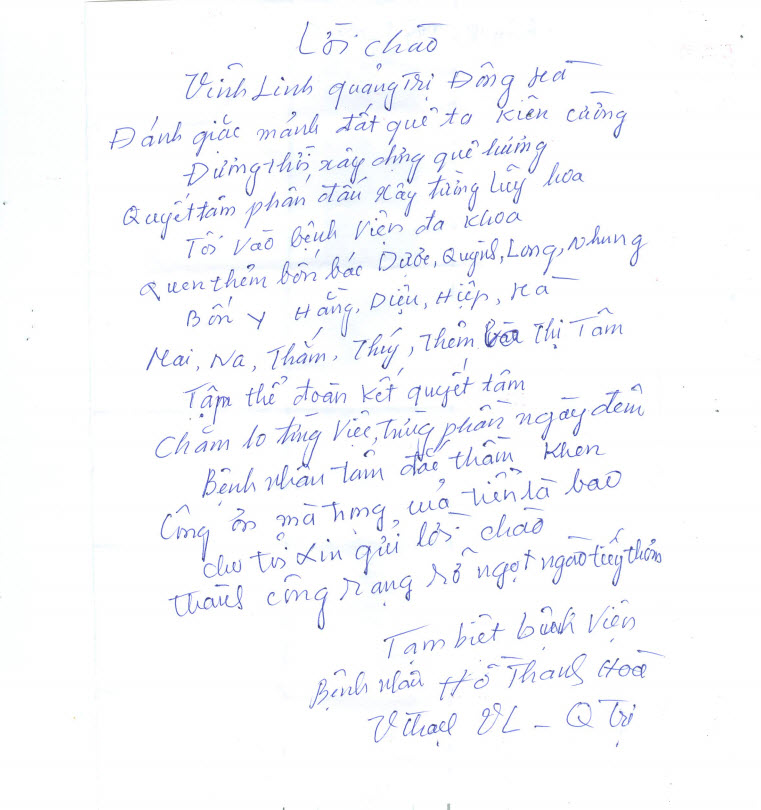 Lời chào
Vĩnh Linh quảng Trị Đông Hà
Đánh giặc mảnh đất quê ta kiên cường
Đứng thời xây dựng quê hương
Quyết tâm phấn đấu xây từng lũy hoa
Tôi vào bệnh viện đa khoa
Quen thêm bốn bác Dược, Quỳnh, Long, Nhung
Bốn y Hằng, Diệu, Hiệp, Hà
Mai, Na, Thắm, Thúy, Thêm Thị Tâm
Tập thể đoàn kết quyết tâm
Chăm lo từng việc, từng phần ngày đêm
Bệnh nhân tâm đắc thầm khen
Công ơn mà trọng, của tiền là bao
cho tôi xin gửi lời chào
Thành công rạng rỡ ngọt ngào tiếng thơm
Tạm biệt bệnh viện
Bệnh nhân Hồ Thanh Hoà
VThạch VL - Q Trị